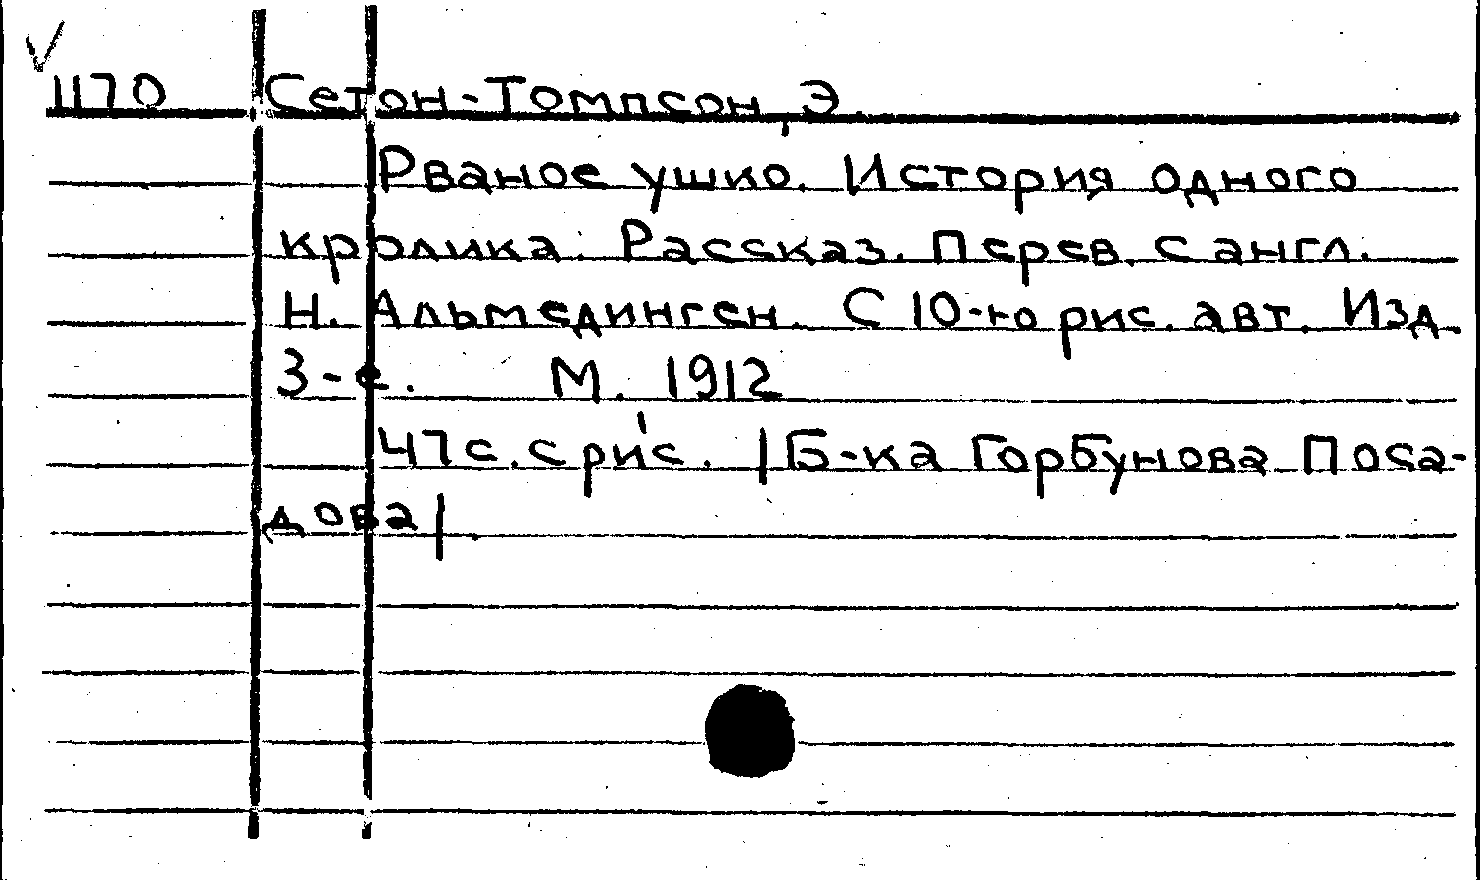 1170 Сетон-Томпсон, Э.
Рваное ушко. История одного
кролика. Рассказ. Перев. с англ.
Н. Альмединген. С 10-ю рис. авт. Изд.
3-е. М. 1912
47 с. с рис. |Б-ка Горбунова Поса-
дова|